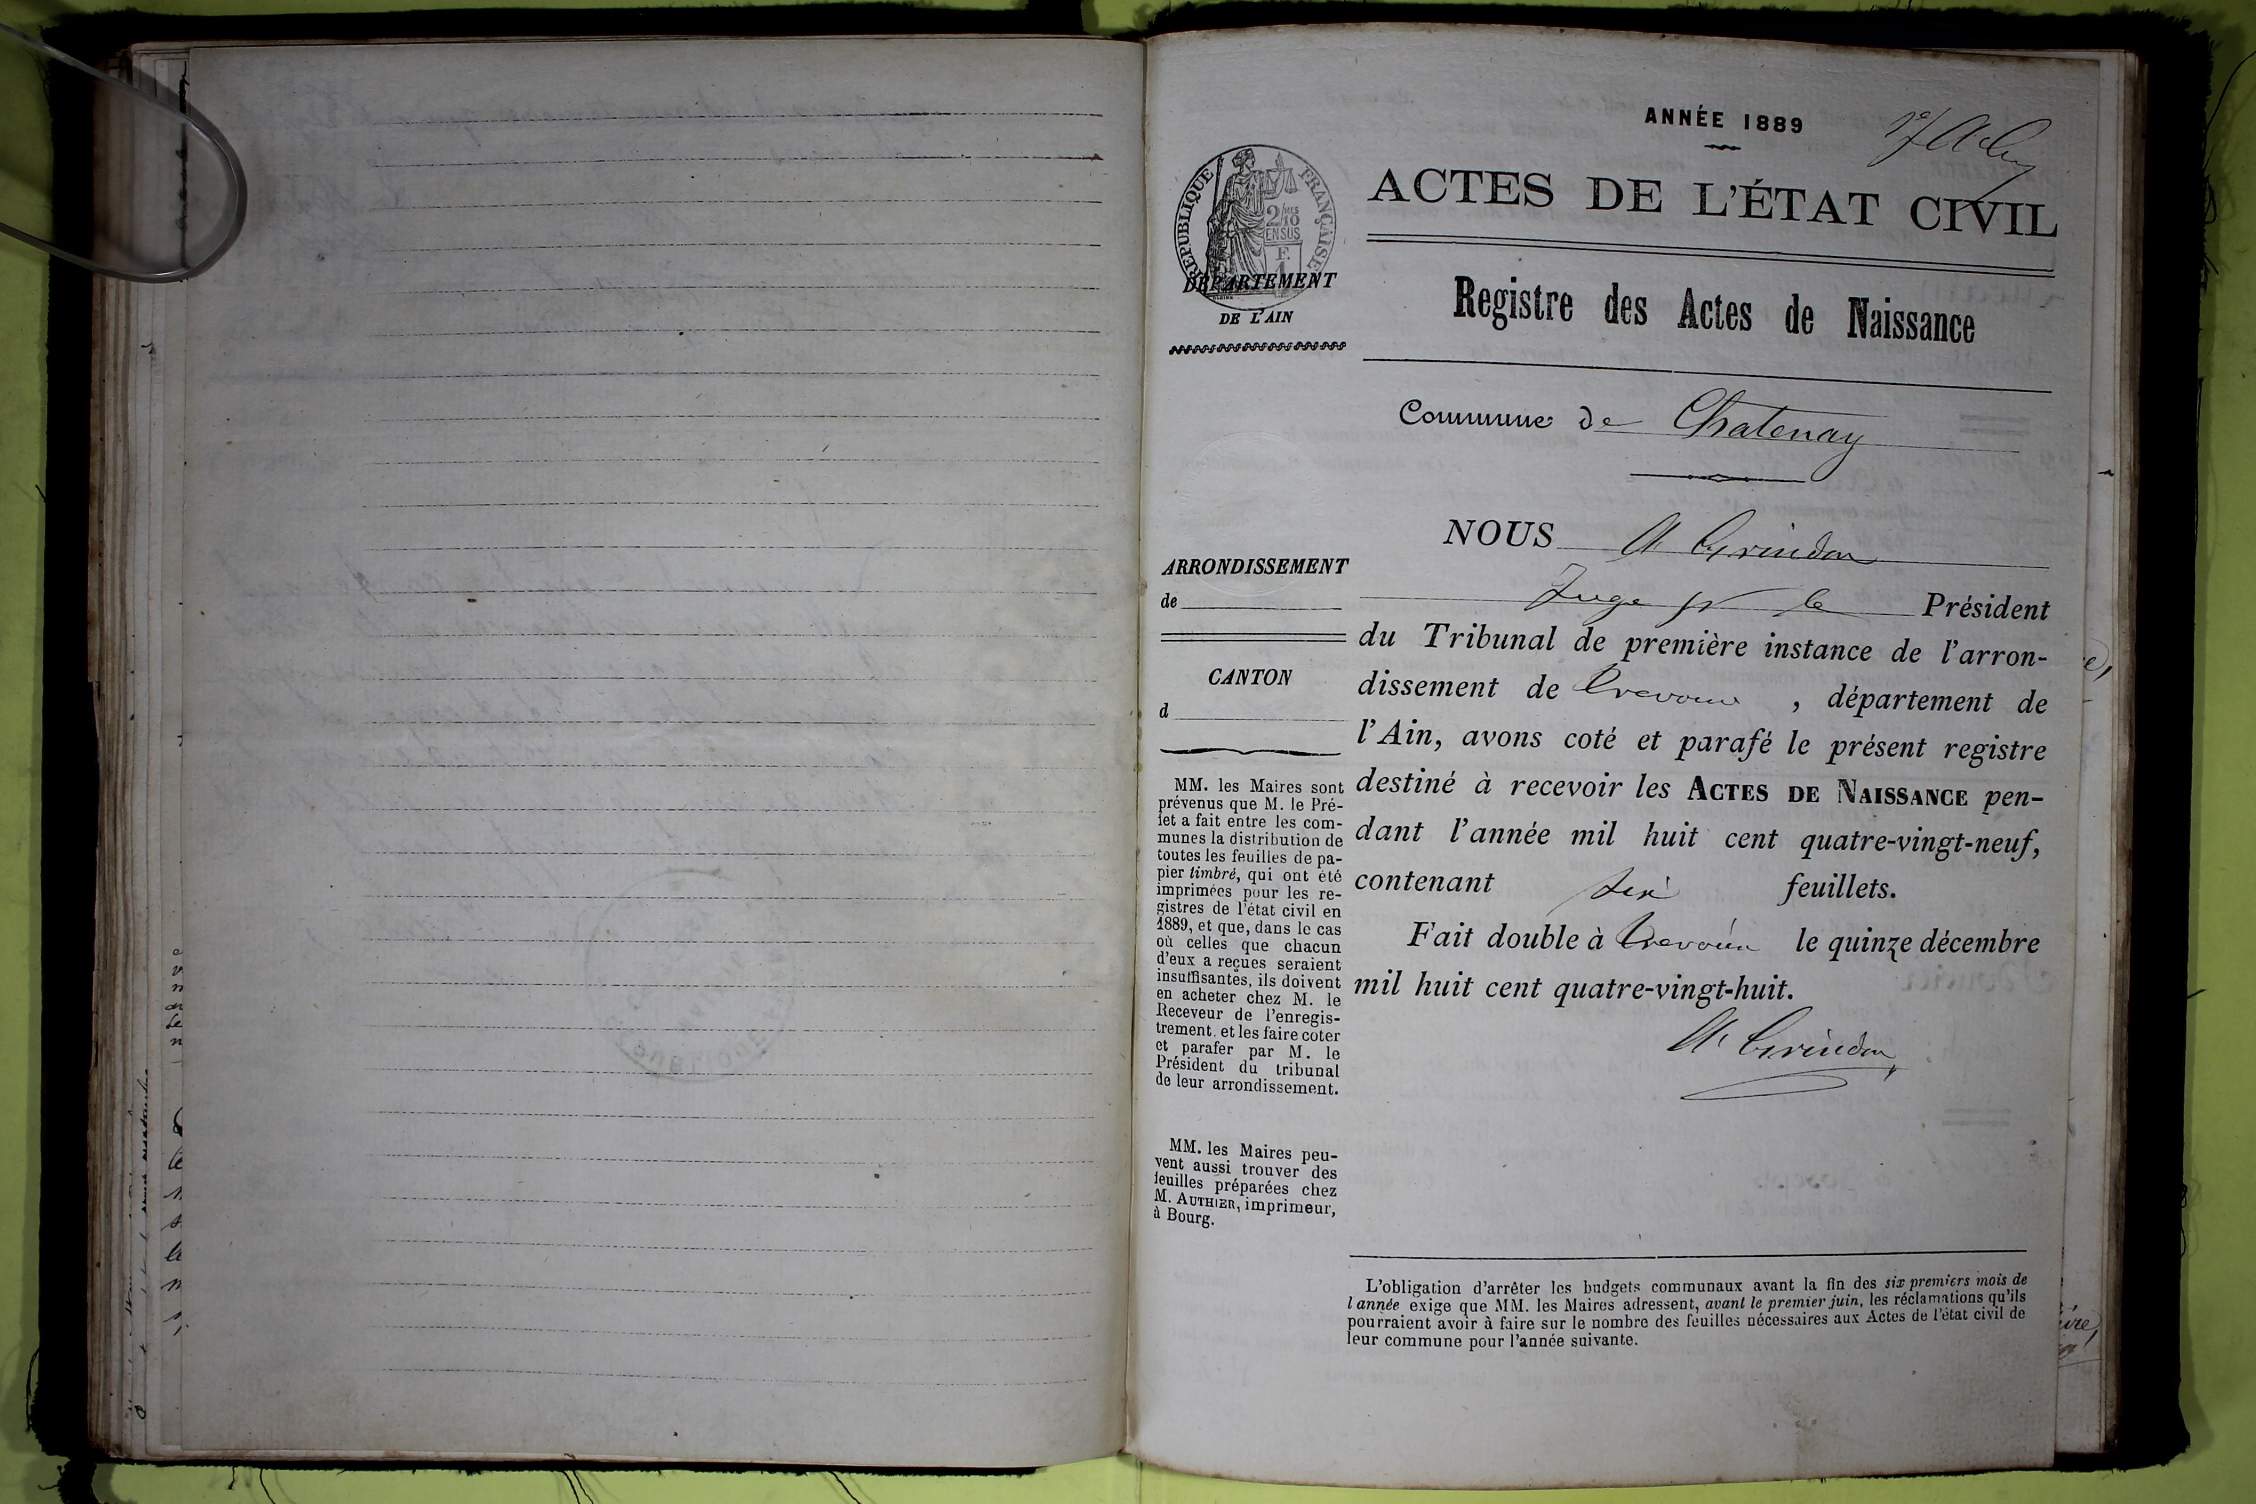 ANNÉE 1889
ACTES DE L'ÉTAT CIVIL
RÉPUBLIQUE FRANÇAISE
DÉPARTEMENT
DE L'AIN
Registre des Actes de Naissance
Commune de Chatenay
NOUS A Grindon
Juge pr le Président
du Tribunal de première instance de l'arron-
dissement de Trevoux, département de
l'Ain, avons coté et parafé le présent registre
destiné à recevoir les ACTES DE NAISSANCE pen-
dant l'année mil huit cent quatre-vingt-neuf,
contenant six feuillets.
Fait double à Trevoux le quinze décembre
mil huit cent quatre-vingt-huit.
A Grindon
ARRONDISSEMENT
de
CANTON
d
MM. les Maires sont
prévenus que M. le Pré-
fet a fait entre les com-
munes la distribution de
toutes les feuilles de pa-
pier timbré, qui ont été
imprimées pour les re-
gistres de l'état civil en
1889, et que, dans le cas
où celles que chacun
d'eux a reçues seraient
insuffisantes, ils doivent
en acheter chez M. le
Receveur de l'enregis-
trement, et les faire coter
et parafer par M. le
Président du tribunal
de leur arrondissement.
MM. les Maires peu-
vent aussi trouver des
feuilles préparées chez
M. AUTHIER, imprimeur,
à Bourg.
L'obligation d'arrêter les budgets communaux avant la fin des six premiers mois de
l'année exige que MM. les Maires adressent, avant le premier juin, les réclamations qu'ils
pourraient avoir à faire sur le nombre des feuilles nécessaires aux Actes de l'état civil de
leur commune pour l'année suivante.